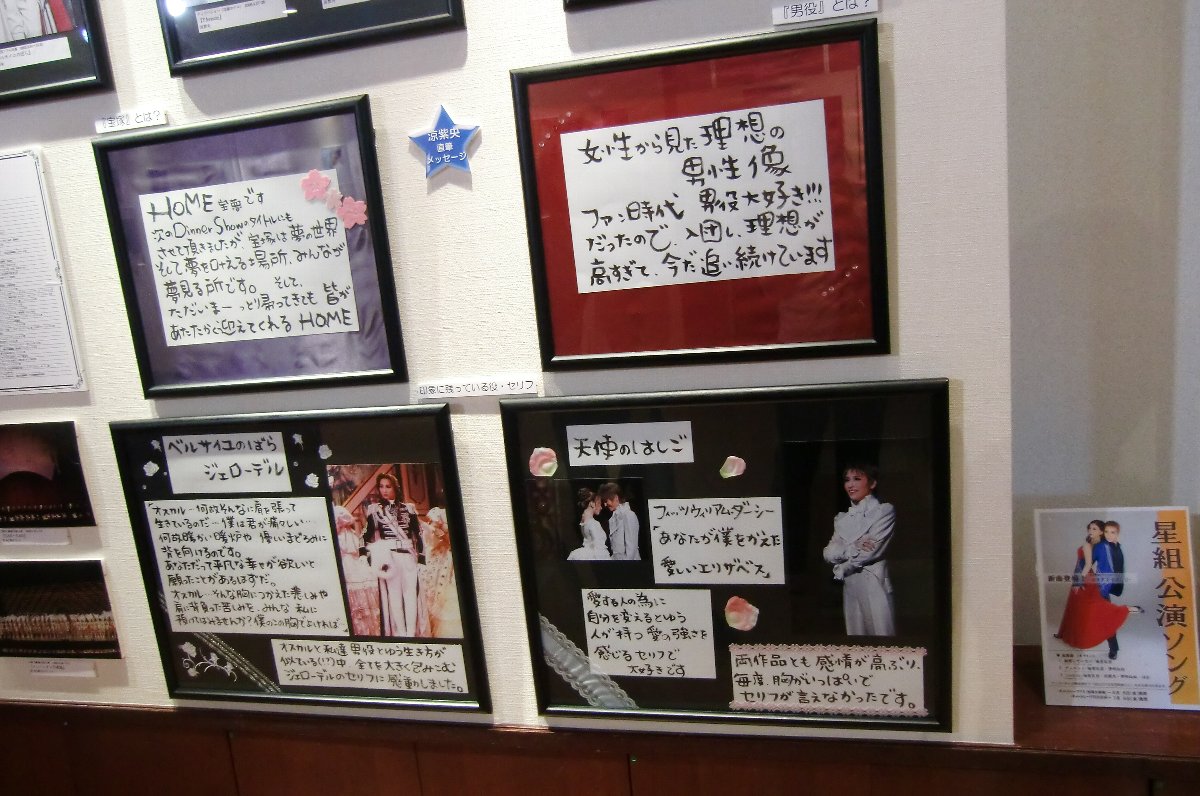 『男役』とは？
『宝塚』とは？
涼紫央
直筆
メッセージ
HOME 宝塚です
次のDinner Showのタイトルにも
させて頂きましたが、宝塚は夢の世界
そして夢を叶える場所、みんなが
夢見る所です。 そして、
ただいまーっとり帰ってきても 皆が
あたたかく迎えてくれる HOME
女性から見た理想の
男性像
ファン時代 男役大好き!!!
だったので、入団し、理想が
高すぎて、今だ追い続けています
印象に残っている役・セリフ
ベルサイユのばら
ジェローデル
「オスカル…何故そんなに肩を張って
生きているのだ…僕は君が痛々しい…
何故暖かい暖炉や 優しいまどろみに
背を向けるのです。
あなただって平凡な幸せが欲しいと
願ったことがあるはずだ。
オスカル…そんな胸につかえた悲しみや
肩に背負った苦しみを、みんな 私に
預けてはみませんか？僕のこの胸でよければ」
オスカルと私達 男役とゆう生き方が
似ている(!?)中 全てを大きく包みこむ
ジェローデルのセリフに感動しました。
天使のはしご
フィッツウィリアム・ダーシー
「あなたが僕をかえた
愛しいエリザベス」
愛する人の為に
自分を変えるとゆう
人が持つ愛の強さを
感じるセリフで
大好きです
両作品とも 感情が高ぶり、
毎度、胸がいっぱいで
セリフが言えなかったです。
星組公演ソング